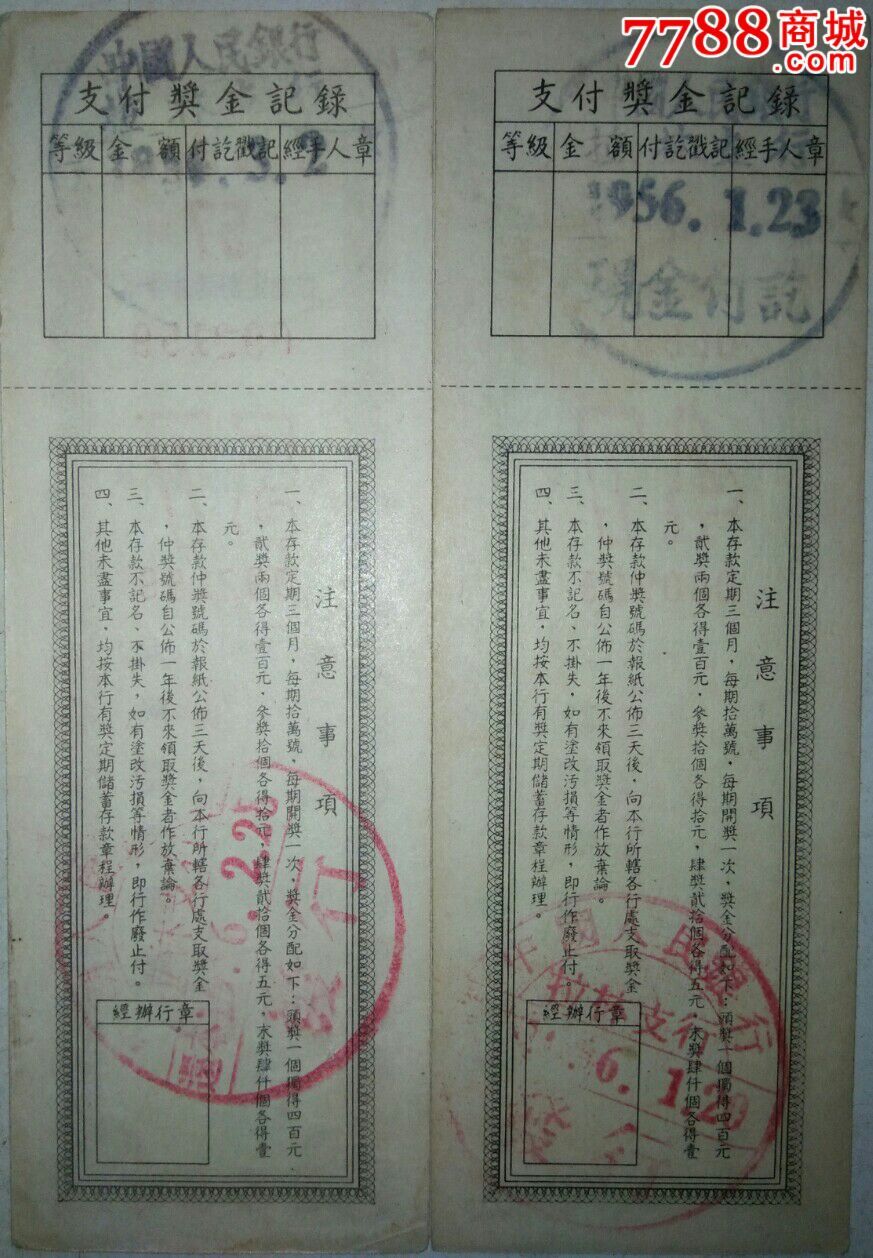 7788商城
中國人民銀行
支付獎金記錄
等級 金額 付訖戳記 經手人章
.3.2
注意事項
一、本存款定期三個月，每期拾萬號，每期開獎一次，獎金分配如下：頭獎一個獨得四百元
，貳獎兩個各得壹百元，參獎拾個各得拾元，肆獎貳拾個各得五元，末獎肆仟個各得壹
元。
二、本存款仲獎號碼於報紙公佈三天後，向本行所轄各行處支取獎金
，仲獎號碼自公佈一年後不來領取獎金者作放棄論。
三、本存款不記名、不掛失，如有塗改汚損等情形，即行作廢止付。
四、其他未盡事宜，均按本行有獎定期儲蓄存款章程辦理。
6.2.25
經辦行章
支付獎金記錄
等級 金額 付訖戳記 經手人章
1956.1.23
現金付訖
注意事項
一、本存款定期三個月，每期拾萬號，每期開獎一次，獎金分配如下：頭獎一個獨得四百元
，貳獎兩個各得壹百元，參獎拾個各得拾元，肆獎貳拾個各得五元，末獎肆仟個各得壹
元。
二、本存款仲獎號碼於報紙公佈三天後，向本行所轄各行處支取獎金
，仲獎號碼自公佈一年後不來領取獎金者作放棄論。
三、本存款不記名、不掛失，如有塗改汚損等情形，即行作廢止付。
四、其他未盡事宜，均按本行有獎定期儲蓄存款章程辦理。
中國人民銀行
支行
6.1.20
經辦行章